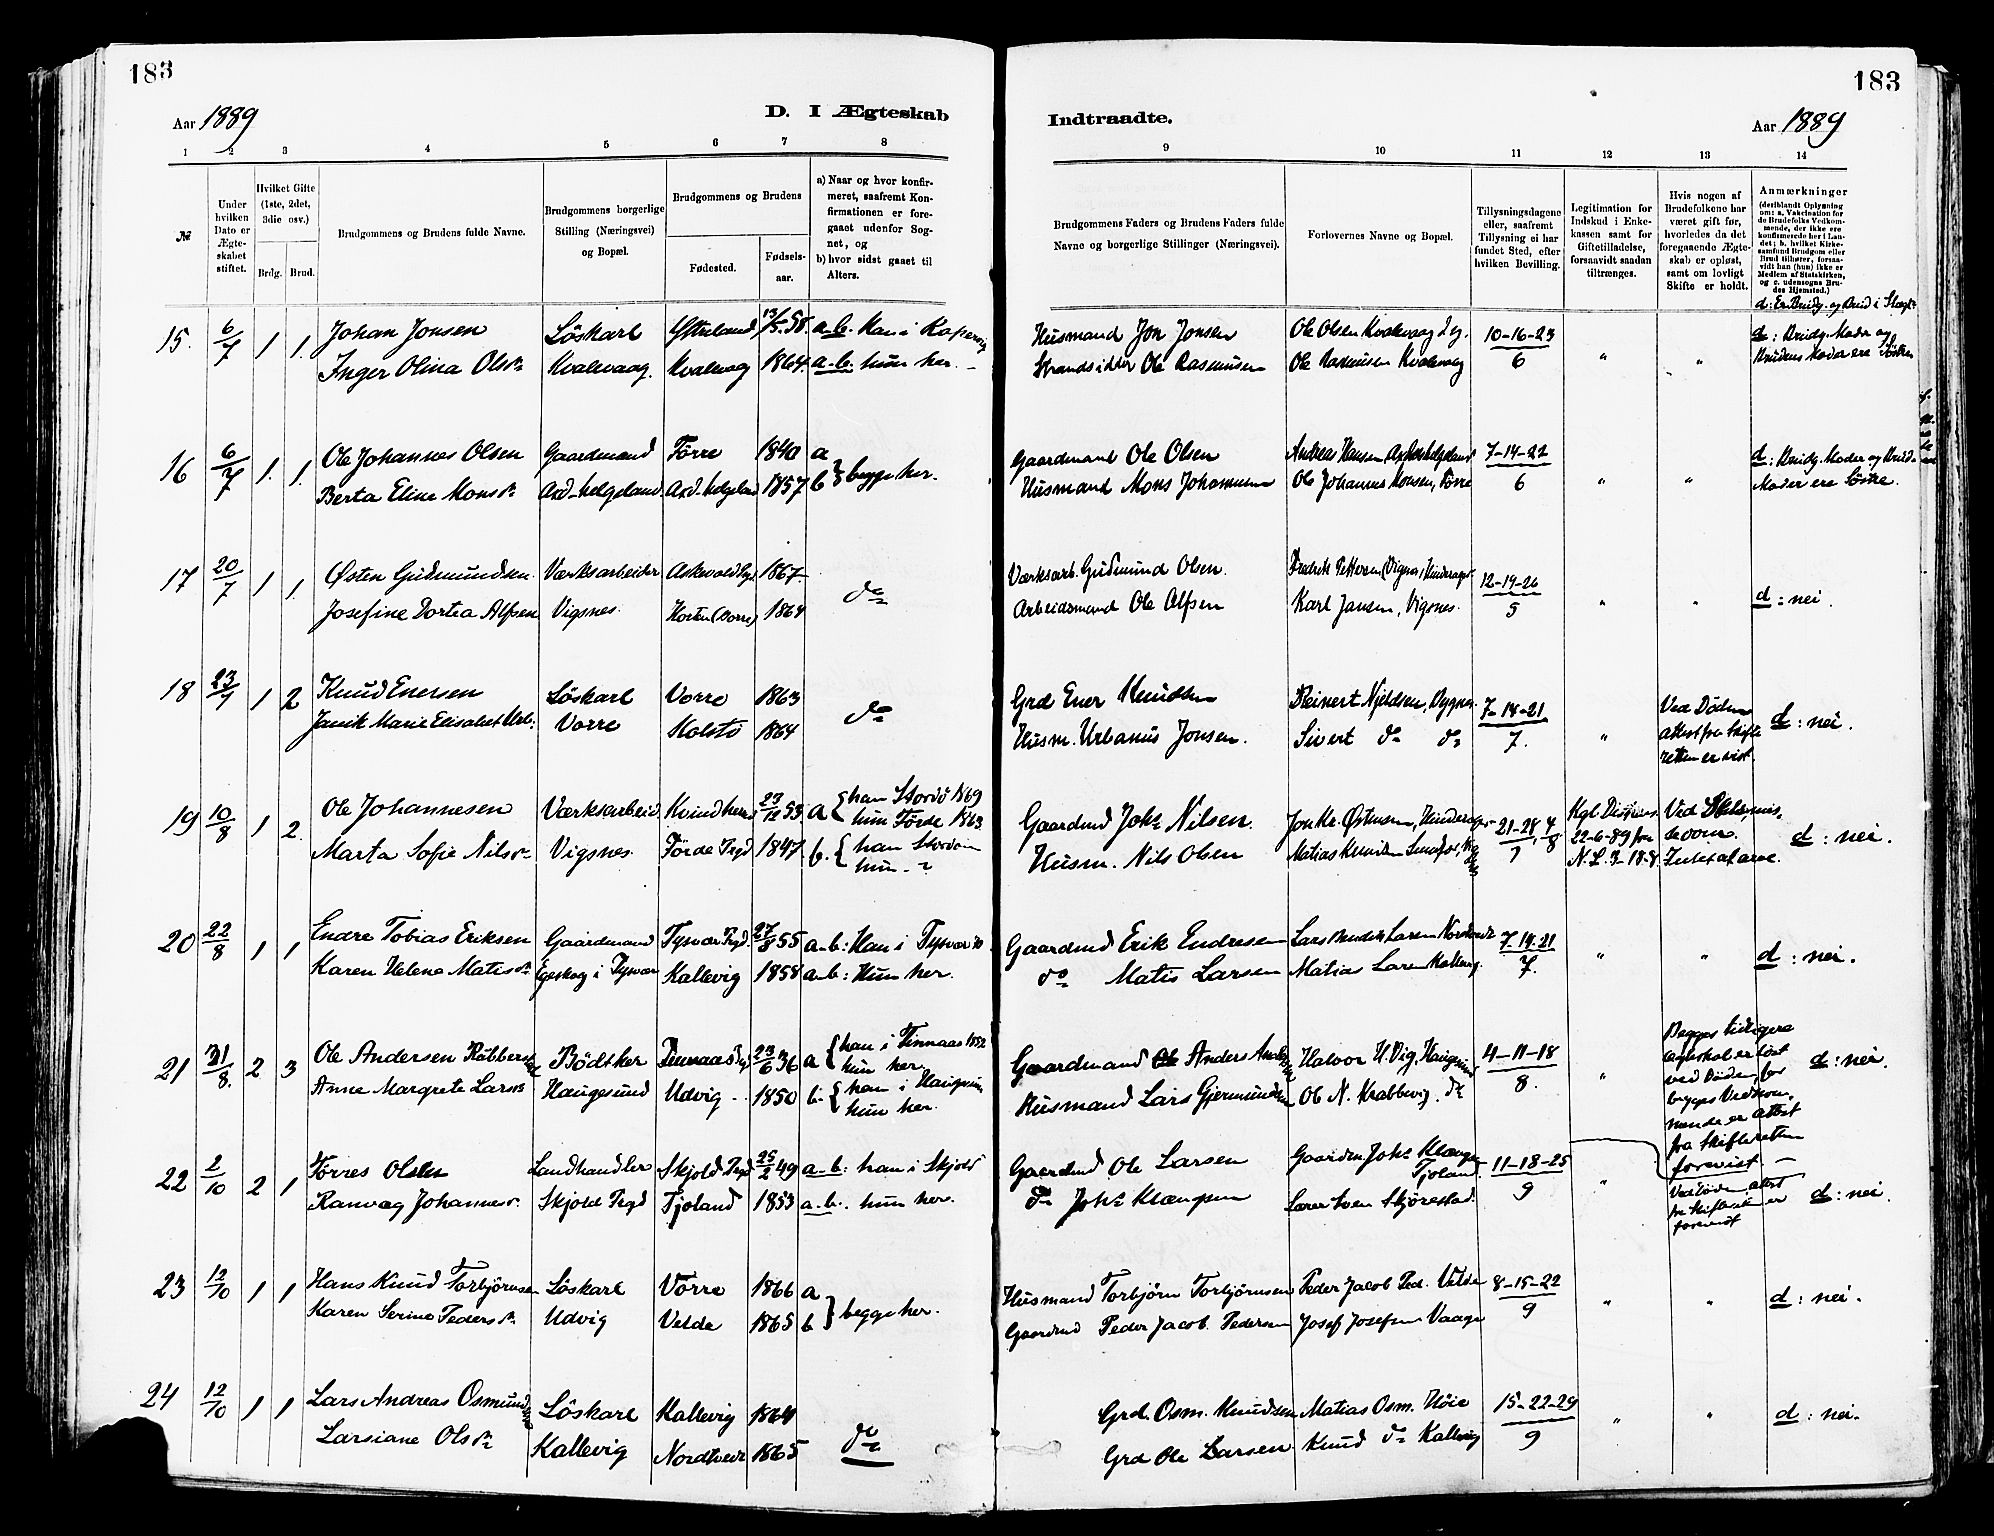 183
183
Aar 1889
D. I Ægteskab
Indtraadte.
Aar 1889
1 2 3 4 5 6 7 8
9 10 11 12 13 14
№
Under hvilken Dato er Ægteskabet stiftet.
Hvilket Gifte (1ste, 2det, 3die osv.)
Brdg. Brud.
Brudgommens og Brudens fulde Navne.
Brudgommens borgerlige Stilling (Næringsvei) og Bopæl.
Brudgommens og Brudens
Fødested.
Fødselsaar.
a) Naar og hvor konfirmeret, saafremt Konfirmationen er foregaaet udenfor Sognet, og
b) hvor sidst gaaet til Alters.
Brudgommens Faders og Brudens Faders fulde Navne og borgerlige Stillinger (Næringsvei).
Forlovernes Navne og Bopæl.
Tillysningsdagene eller, saafremt Tillysning ei har fundet Sted, efter hvilken Bevilling.
Legitimation for Indskud i Enkekassen samt for Giftetilladelse, forsaavidt saadan tiltrænges.
Hvis nogen af Brudefolkene har været gift før, hvorledes da det foregaaende Ægteskab er opløst, samt om lovligt Skifte er holdt.
Anmærkninger (deriblandt Oplysning om: a. Vakcination for de Brudefolks Vedkommende, der ikke ere konfirmerede her i Landet; b. hvilket Kirkesamfund Brudgom eller Brud tilhører, forsaavidt han (hun) ikke er Medlem af Statskirken, og c. udensogns Brudes Hjemsted.)
d: Er Brudg. og Brud i Slægt
15. 6/7 1 1. Johan Jonsen Löskarl 58. a-b. Han i Kopervig Husmand Jon Jonsen Ole Olsen Kvalevaag 10-16-23 d: Brudg. Moder og
Inger Olina Olsdr Kvalevaag. Kvalevag 1864. a-b. hun her. Strandsidder Ole Rasmusen Ole Rasmusen Kvalevaag 6 " " Brudens Moder ere Söstre
16 6/7 1. 1. Ole Johannes Olsen Gaardmand Förre 1840 a Gaardmand Ole Olsen Andreas Hansen 7-14-22 d: Brudg. Moder og Brud.
Berta Eline Monsdr Axd-helgeland Axd-helgeland 1857 b } begge her. Husmand Mons Johannesen Ole Johannes Monsen, Förre 6 " " Moder ere Söstre.
17 20/7 1 1. Østen Gudmundsen Værksarbeider 1867 do Værksarb. Gudmund Olsen. Fredrik Pettersen 12-19-26
Josefine Dortea Alfsen Vigsnes. Horten (Borre) 1864 Arbeidsmand Ole Alfsen Karl Jansen, Vigsnes. 5 " " d: nei.
18 23/7 1 2 Knud Enersen Löskarl Vorre 1863 do Grd Ener Knudsen Reinert Njeldsen, Bygnes 7-14-21 Ved Döden
Janik Marie Elisabet Urb: Vorre Kolstö 1864 Husm. Urbanus Jonsen. Sivert do do 7. " attest fra Skifte d: nei.
retten er vist.
19 10/8 1 2. Ole Johannesen Værksarbeid Kvindherred 27/12 53 a { han Stordö 1869 hun Förde 1863. Gaardmd Johs Nilsen. 21-28/7, 4/8 Kgl. 22-6-89
Marta Sofie Nilsdr Vigsnes. Förde Prgd 1847 b. { han Stordöen hun - " Husm. Nils Olsen Matias Knudsen d: nei.
20 22/8 1 1 Endre Tobias Eriksen Gaardmand Tysvær Prgd. 27/8 55 a-b: Han i Tysvær Gaardmd Erik Endresen 7-14-21
Karen Helene Matisdr Egeskog i Tysvær Kallevig 1858 a-b: Hun her. do Matis Larsen Matias Larsen Kallevig. 7. " " d: nei.
21 31/8. 2 3 Ole Andersen Bödtker Finnaas Prgd 23/6 36 a { han i Finnaas 1852 hun her. Gaardmand Anders Halvor H. Vig, Haugesund 4-11-18 Begges tidligere Ægteskab er löst ved Döden, for begges Vedkommende er attest fra Skifteretten forevist d: nei.
Anne Margrete Larsdr Haugesund Udvig 1850 b. { han i Haugesund hun her. Husmand Lars Gjermundsen Ole N. Krabbevig. do 8. "
22 2/10 2 1 Torres Olsen Landhandler Skjold Prgd 25/2 49 a-b: han i Skjold Gaardmd Ole Larsen Gaardm Johs Klængsen Tjoland 11-18-25 Ved Döden. attest
Ranvag Johannesdr. Skjold Prgd Tjoland 1853 a-b. hun her. do Johs Klængsen Lærer Sven Skjörestad. 9 " fra Skifterett er forevist d: nei.
23 12/10 1 1 Hans Knud Torbjörnsen Löskarl Vorre 1866 a Husmand Torbjörn Torbjörnsen Peder Jacob Ped. Velde 8-15-22
Karen Serine Pedersdr. Udvig Velde 1865 b } begge her. Gaardmd Peder Jacob Pedersen Josef Josefsen Vaage 9 " " d: nei.
24 12/10 1 1 Lars Andreas Osmundsen Löskarl Kallevig 1864 Grd. Osm. Knudsen Matias Osm. Höie 15-22-29
Larsiane Olsdr Kallevig Nordhede 1865 do Grd Ole Larsen Knud do Kallevig 9 " " d: nei.